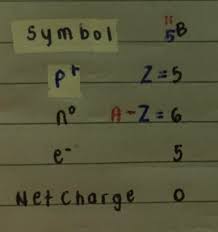 symbol ¹¹₅B
p⁺ Z=5
n⁰ A-Z=6
e⁻ 5
Net charge 0